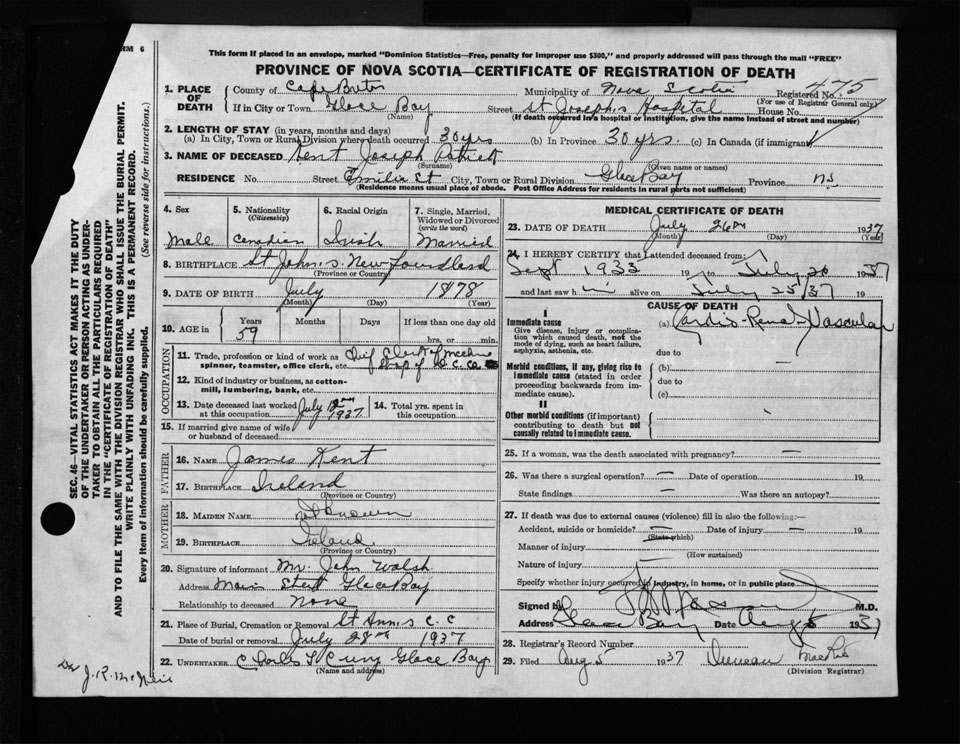 RM 6
This form if placed in an envelope, marked "Dominion Statistics—Free, penalty for improper use $300," and properly addressed will pass through the mail "FREE"
PROVINCE OF NOVA SCOTIA—CERTIFICATE OF REGISTRATION OF DEATH
1. PLACE OF DEATH County of Cape Breton Municipality of Nova Scotia Registered No. 475
(For use of Registrar General only)
If in City or Town Glace Bay Street St Joseph's Hospital House No.
(Name) (If death occurred in a hospital or institution, give the name instead of street and number)
2. LENGTH OF STAY (in years, months and days)
(a) In City, Town or Rural Division where death occurred 30 yrs (b) In Province 30 yrs. (c) In Canada (if immigrant)
3. NAME OF DECEASED Kent Joseph Patrick
(Surname) (Given name or names)
RESIDENCE No. Street Emilia St City, Town or Rural Division Glace Bay Province NS
(Residence means usual place of abode. Post Office Address for residents in rural parts not sufficient)
4. Sex
Male
5. Nationality
(Citizenship)
Canadian
6. Racial Origin
Irish
7. Single, Married, Widowed or Divorced
(write the word)
Married
8. BIRTHPLACE St John's Newfoundland
(Province or Country)
9. DATE OF BIRTH July 1878
(Month) (Day) (Year)
10. AGE in Years Months Days If less than one day old
59 hrs. or min.
OCCUPATION
11. Trade, profession or kind of work as Chief Clerk of Machine
spinner, teamster, office clerk, etc. Shop of D. C. Co
12. Kind of industry or business, as cotton-
mill, lumbering, bank, etc.
13. Date deceased last worked at this occupation July 12th 1937
14. Total yrs. spent in this occupation
15. If married give name of wife
or husband of deceased
FATHER
16. NAME James Kent
17. BIRTHPLACE Ireland
(Province or Country)
MOTHER
18. MAIDEN NAME not known
19. BIRTHPLACE Ireland
(Province or Country)
20. Signature of informant Mr. John Walsh
Address Main Street Glace Bay
Relationship to deceased None
21. Place of Burial, Cremation or Removal St Anns C. C
Date of burial or removal July 28th 1937
22. UNDERTAKER Charles Glace Bay
(Name and Address)
MEDICAL CERTIFICATE OF DEATH
23. DATE OF DEATH July 26th 1937
(Month) (Day) (Year)
24. I HEREBY CERTIFY that I attended deceased from:
Sept 1933 19 to July 26 1937
and last saw him alive on July 25/37 19
I CAUSE OF DEATH
Immediate cause (a) Cardio-Renal Vascular
Give disease, injury or complica-
tion which caused death, not the
mode of dying, such as heart failure,
asphyxia, asthenia, etc.
due to
Morbid conditions, if any, giving rise to (b)
immediate cause (stated in order due to
proceeding backwards from im-
mediate cause). (c)
II
Other morbid conditions (if important)
contributing to death but not
causally related to immediate cause.
25. If a woman, was the death associated with pregnancy? —
26. Was there a surgical operation? — Date of operation 19
State findings — Was there an autopsy? —
27. If death was due to external causes (violence) fill in also the following:—
Accident, suicide or homicide? — Date of injury — 19
(State which)
Manner of injury
(How sustained)
Nature of injury
Specify whether injury occurred in industry, in home, or in public place
Signed by M.D.
Address Glace Bay Date Aug 5 1937
28. Registrar's Record Number
29. Filed Aug 5 1937 Duncan MacRae
(Division Registrar)
SEC. 46—VITAL STATISTICS ACT MAKES IT THE DUTY
OF THE UNDERTAKER OR PERSON ACTING AS UNDER-
TAKER TO OBTAIN ALL THE PARTICULARS REQUIRED
IN THE "CERTIFICATE OF REGISTRATION OF DEATH"
AND TO FILE THE SAME WITH THE DIVISION REGISTRAR WHO SHALL ISSUE THE BURIAL PERMIT.
WRITE PLAINLY WITH UNFADING INK. THIS IS A PERMANENT RECORD.
Every item of information should be carefully supplied. (See reverse side for instructions.)
Dr J. R. McNeil